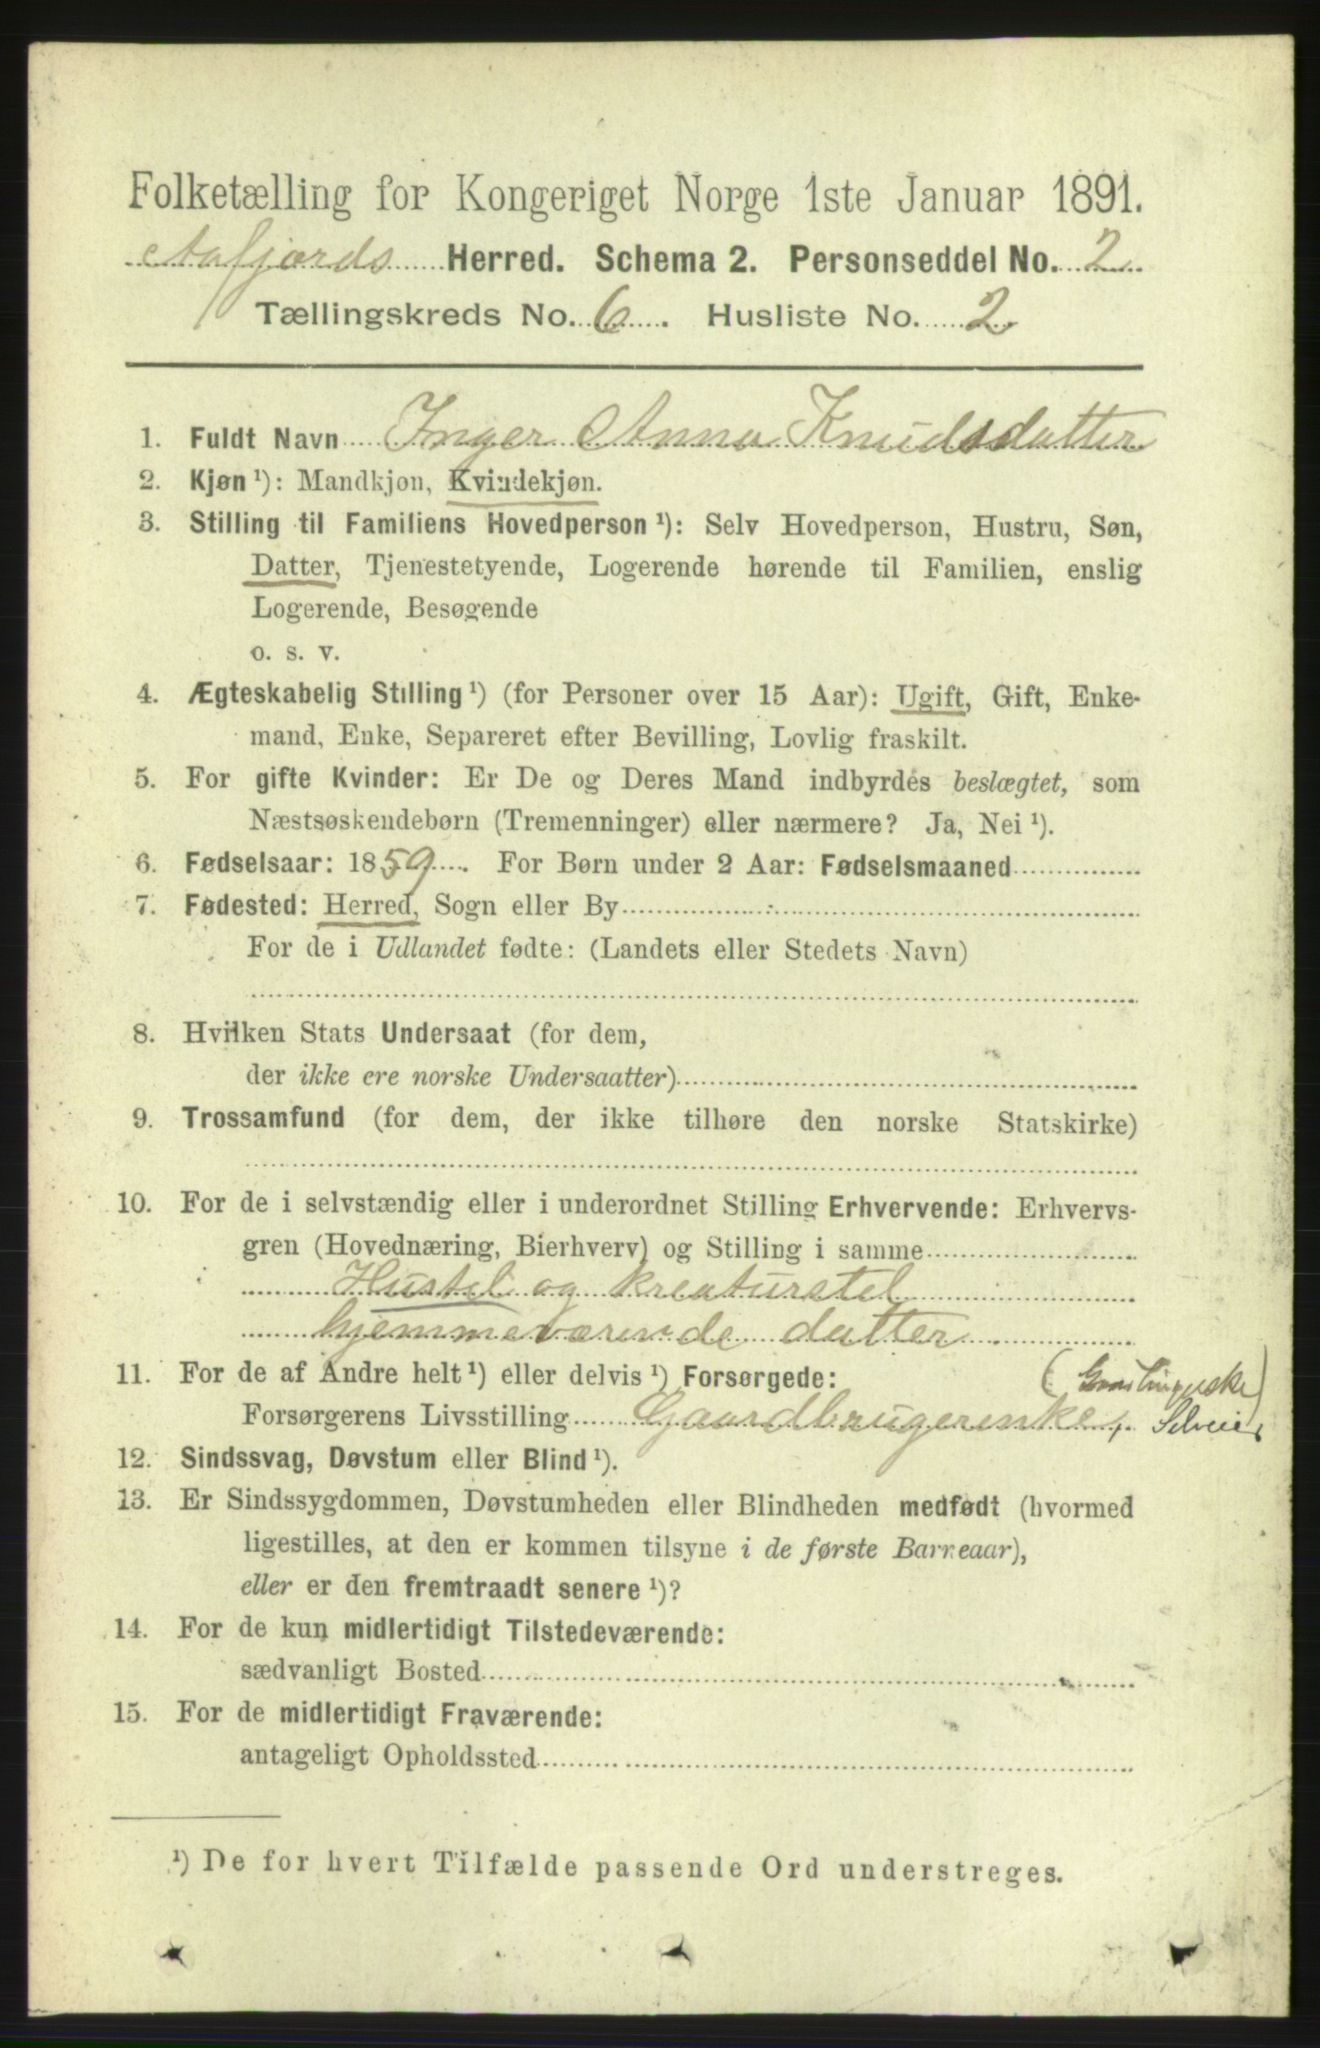 Folketælling for Kongeriget Norge 1ste Januar 1891.
Aafjords Herred. Schema 2. Personseddel No. 2
Tællingskreds No. 6. Husliste No. 2
1. Fuldt Navn Inger Anna Knudsdatter
2. Kjøn ¹): Mandkjøn, Kvindekjøn.
3. Stilling til Familiens Hovedperson ¹): Selv Hovedperson, Hustru, Søn,
Datter, Tjenestetyende, Logerende hørende til Familien, enslig
Logerende, Besøgende
o. s. v.
4. Ægteskabelig Stilling ¹) (for Personer over 15 Aar): Ugift, Gift, Enke-
mand, Enke, Separeret efter Bevilling, Lovlig fraskilt.
5. For gifte Kvinder: Er De og Deres Mand indbyrdes beslægtet, som
Næstsøskendebørn (Tremenninger) eller nærmere? Ja, Nei ¹).
6. Fødselsaar: 1859. For Børn under 2 Aar: Fødselsmaaned
7. Fødested: Herred, Sogn eller By
For de i Udlandet fødte: (Landets eller Stedets Navn)
8. Hvilken Stats Undersaat (for dem,
der ikke ere norske Undersaatter)
9. Trossamfund (for dem, der ikke tilhøre den norske Statskirke)
10. For de i selvstændig eller i underordnet Stilling Erhvervende: Erhvervs-
gren (Hovednæring, Bierhverv) og Stilling i samme
Hustel og kreaturstel
hjemmeværende datter
11. For de af Andre helt ¹) eller delvis ¹) Forsørgede:
Forsørgerens Livsstilling Gaardbrugerenke, Selveier
12. Sindssvag, Døvstum eller Blind ¹).
13. Er Sindssygdommen, Døvstumheden eller Blindheden medfødt (hvormed
ligestilles, at den er kommen tilsyne i de første Barneaar),
eller er den fremtraadt senere ¹)?
14. For de kun midlertidigt Tilstedeværende:
sædvanligt Bosted
15. For de midlertidigt Fraværende:
antageligt Opholdssted
¹) De for hvert Tilfælde passende Ord understreges.